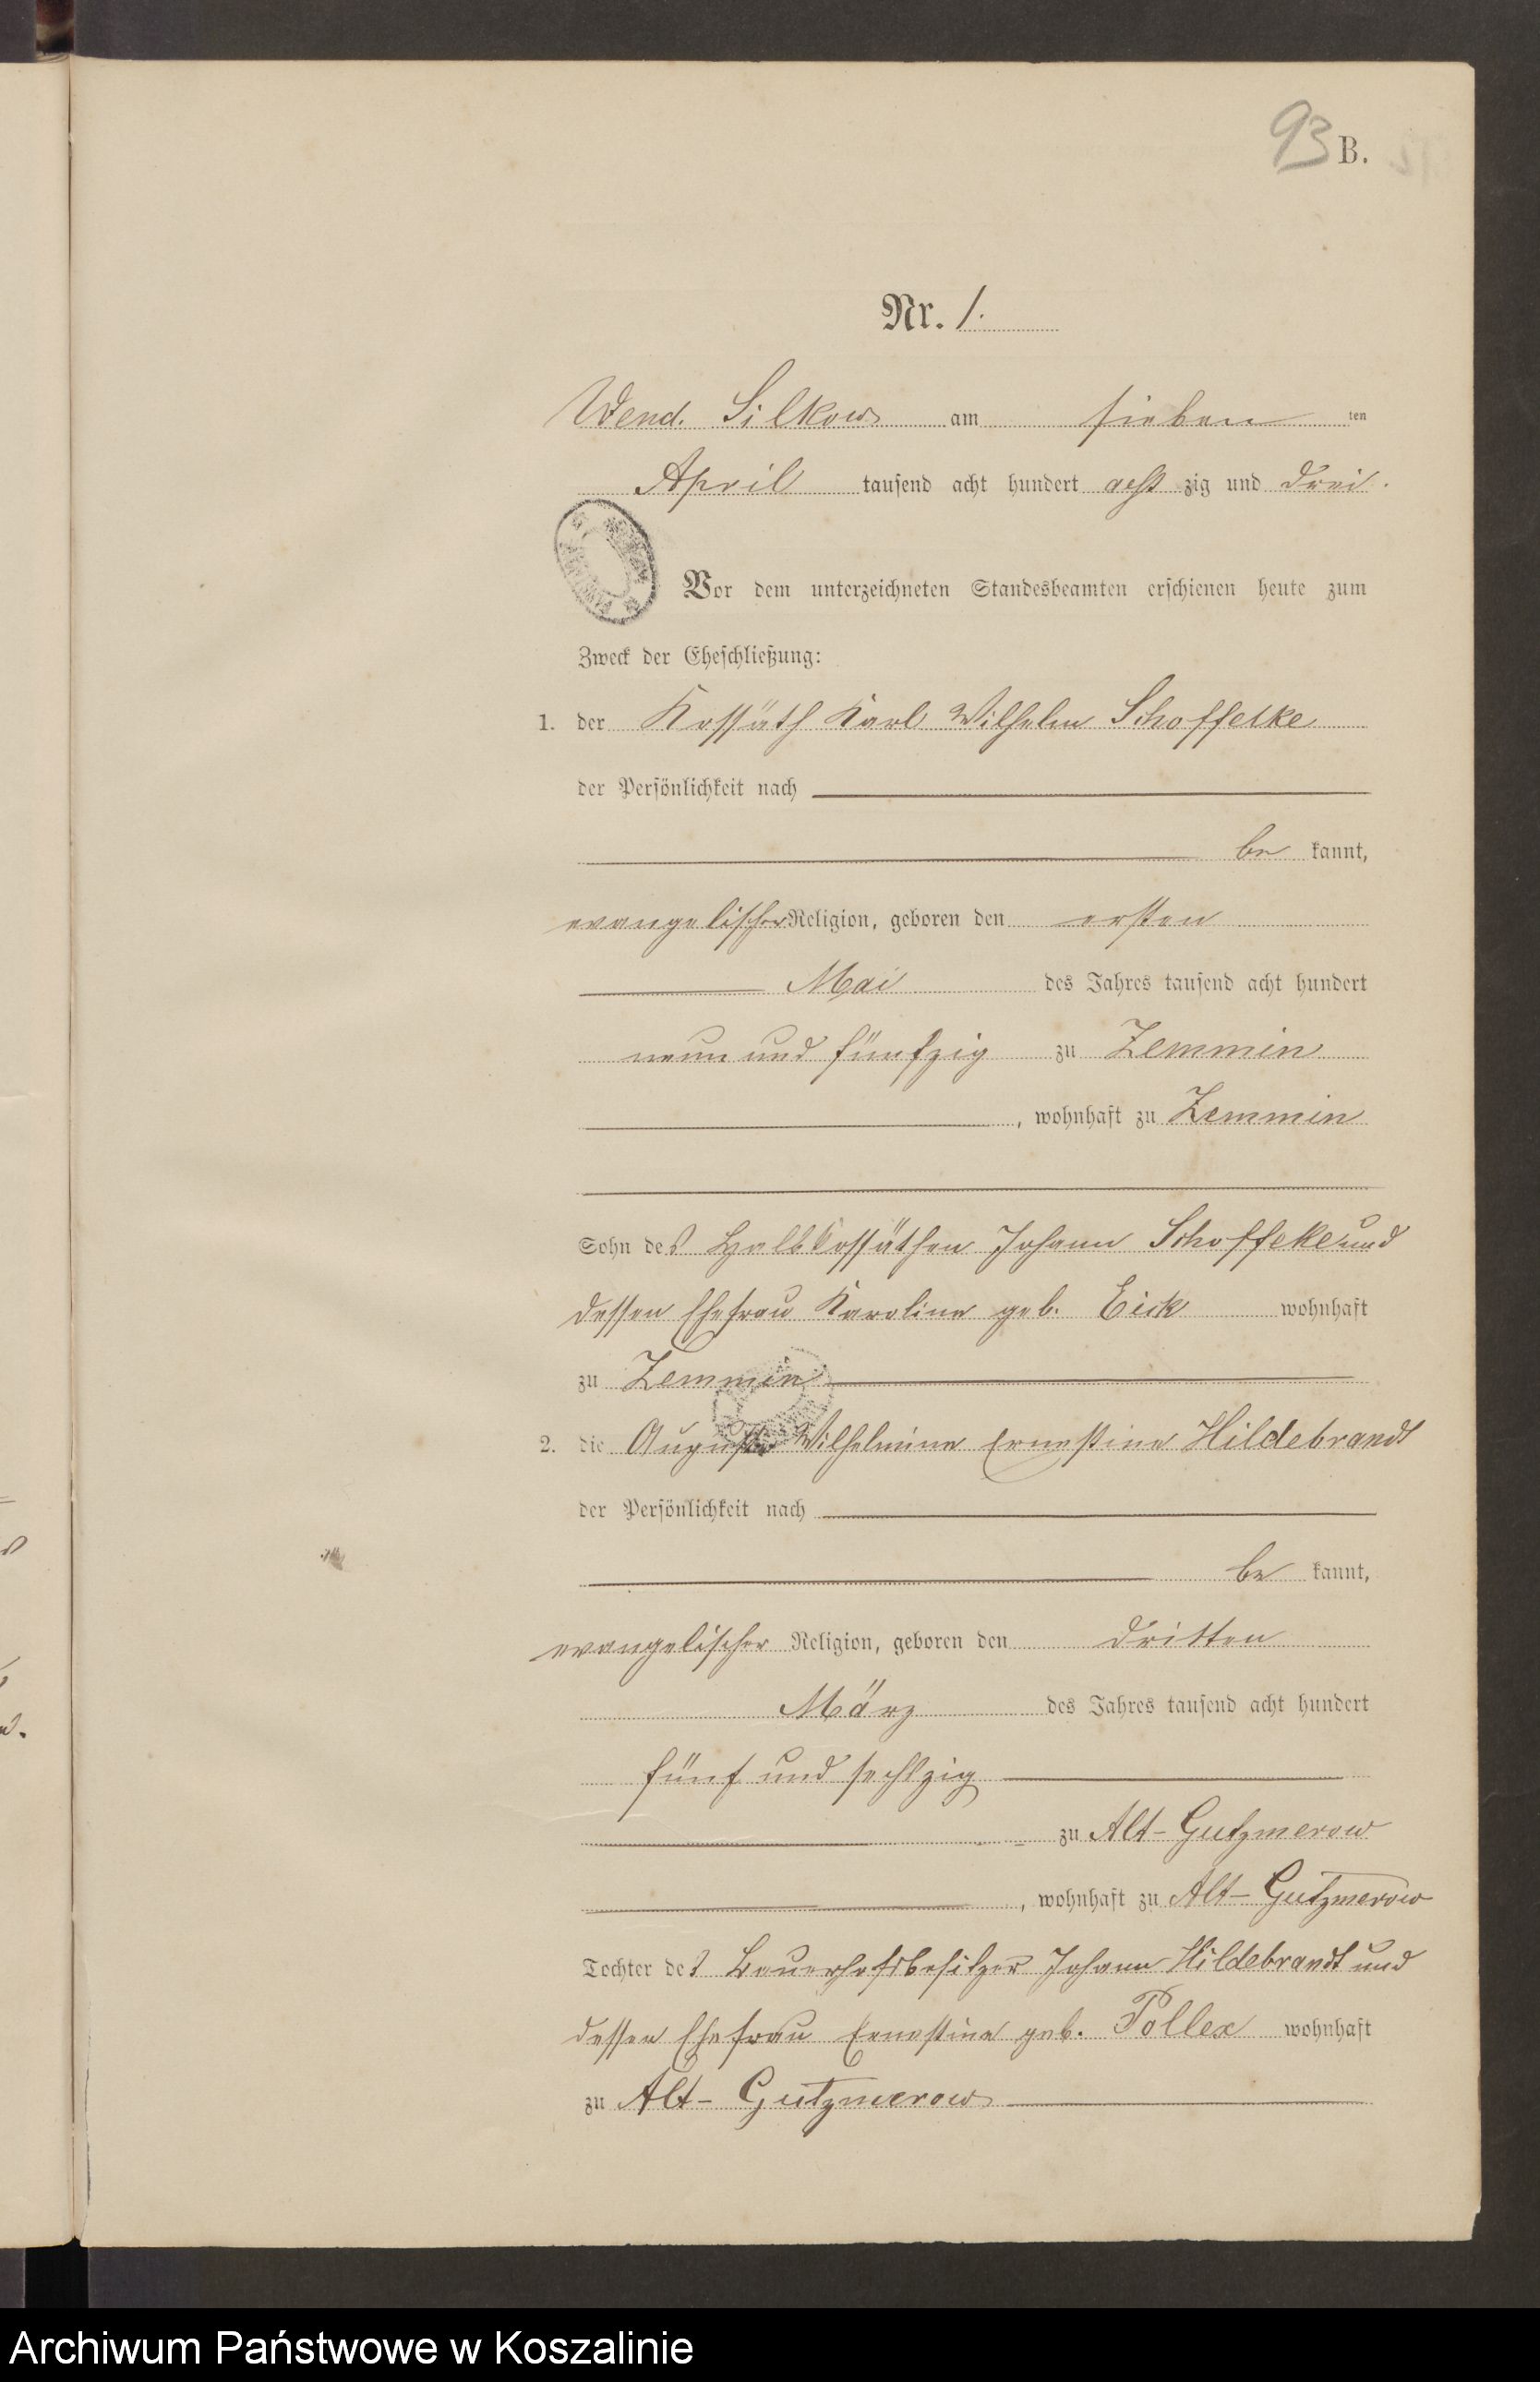 93 B.
Nr. 1.
Wend. Silkow am sieben ten
April tausend acht hundert acht zig und drei.
Vor dem unterzeichneten Standesbeamten erschienen heute zum
Zweck der Eheschließung:
1. der Kossäth Karl Wilhelm Schoffelke
der Persönlichkeit nach
be kannt,
evangelischer Religion, geboren den ersten
Mai des Jahres tausend acht hundert
neun und fünfzig zu Zemmin
, wohnhaft zu Zemmin
Sohn des Halbkossäthen Johann Schoffelke und
dessen Ehefrau Karoline geb. Eick wohnhaft
zu Zemmin
2. die Auguste Wilhelmine Ernestine Hildebrandt
der Persönlichkeit nach
be kannt,
evangelischer Religion, geboren den dritten
März des Jahres tausend acht hundert
fünf und sechszig
zu Alt-Gutzmerow
, wohnhaft zu Alt-Gutzmerow
Tochter des Bauerhofsbesitzer Johann Hildebrandt und
dessen Ehefrau Ernestine geb. Pollex wohnhaft
zu Alt-Gutzmerow
Archiwum Państwowe w Koszalinie